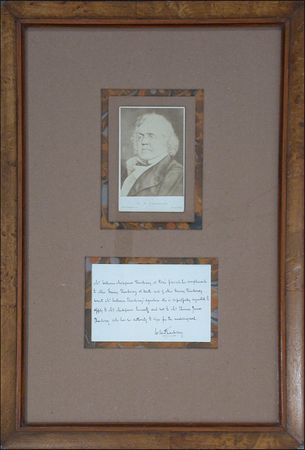 Mr William Makepeace Thackeray at Paris presents his compliments to
Miss Fanny Thackeray at Bath and if Miss Fanny Thackeray
wants Mr William Thackeray's signature she is respectfully requested to
apply to Mr Makepeace himself and not to Mr Thomas James
Thackeray who has no authority to sign for the undersigned.
W M Thackeray